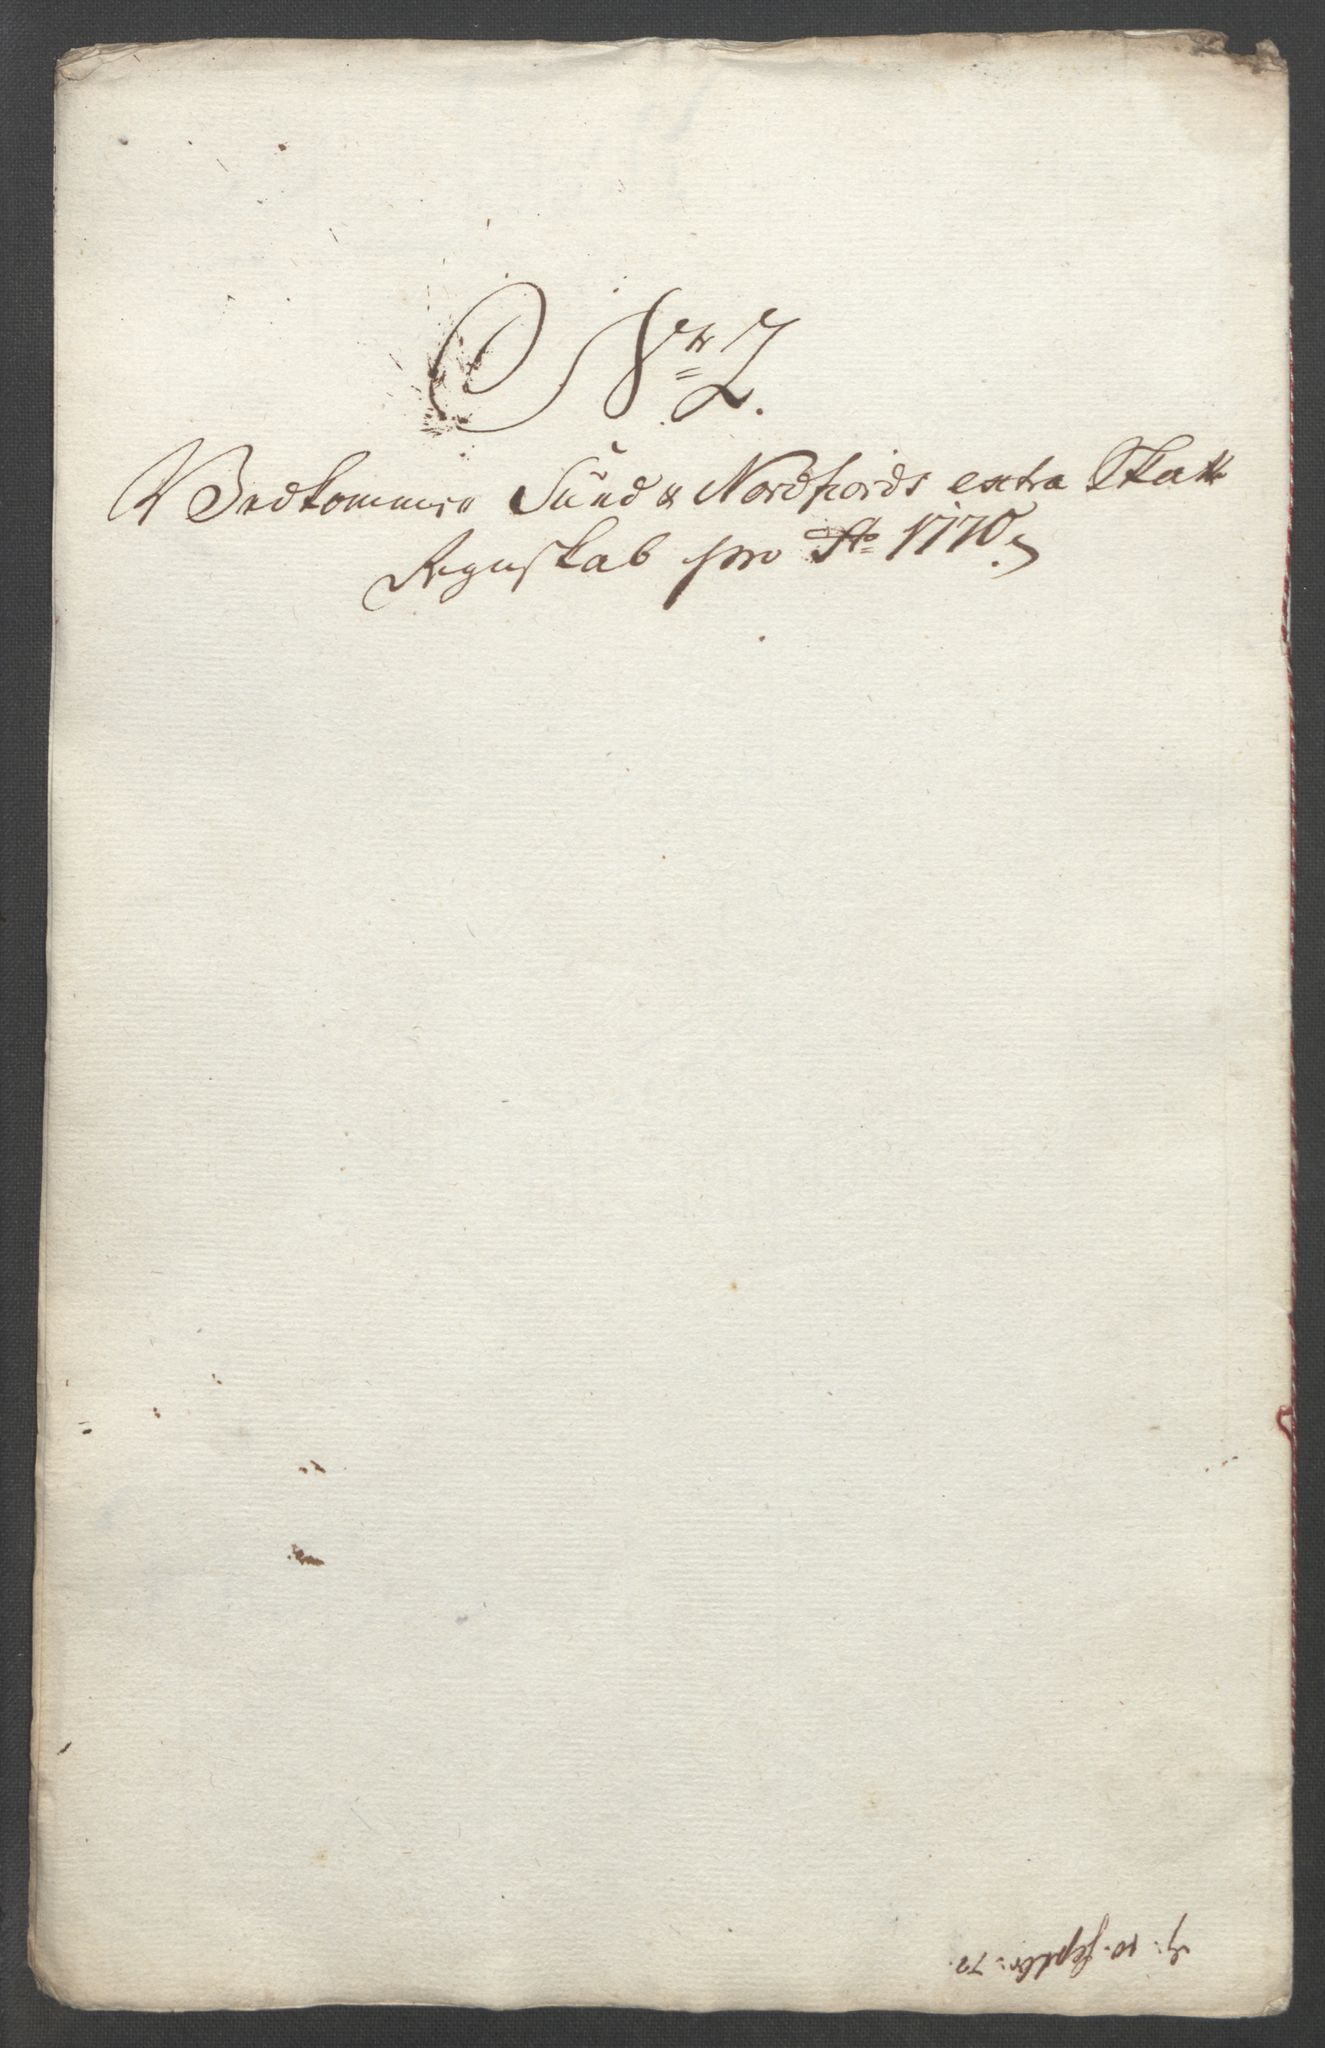 No 2.
Vedkommer Sund & Nordfiords extra Skatte
Regnskab pro Ao 1770.
10. Septbr: 72.